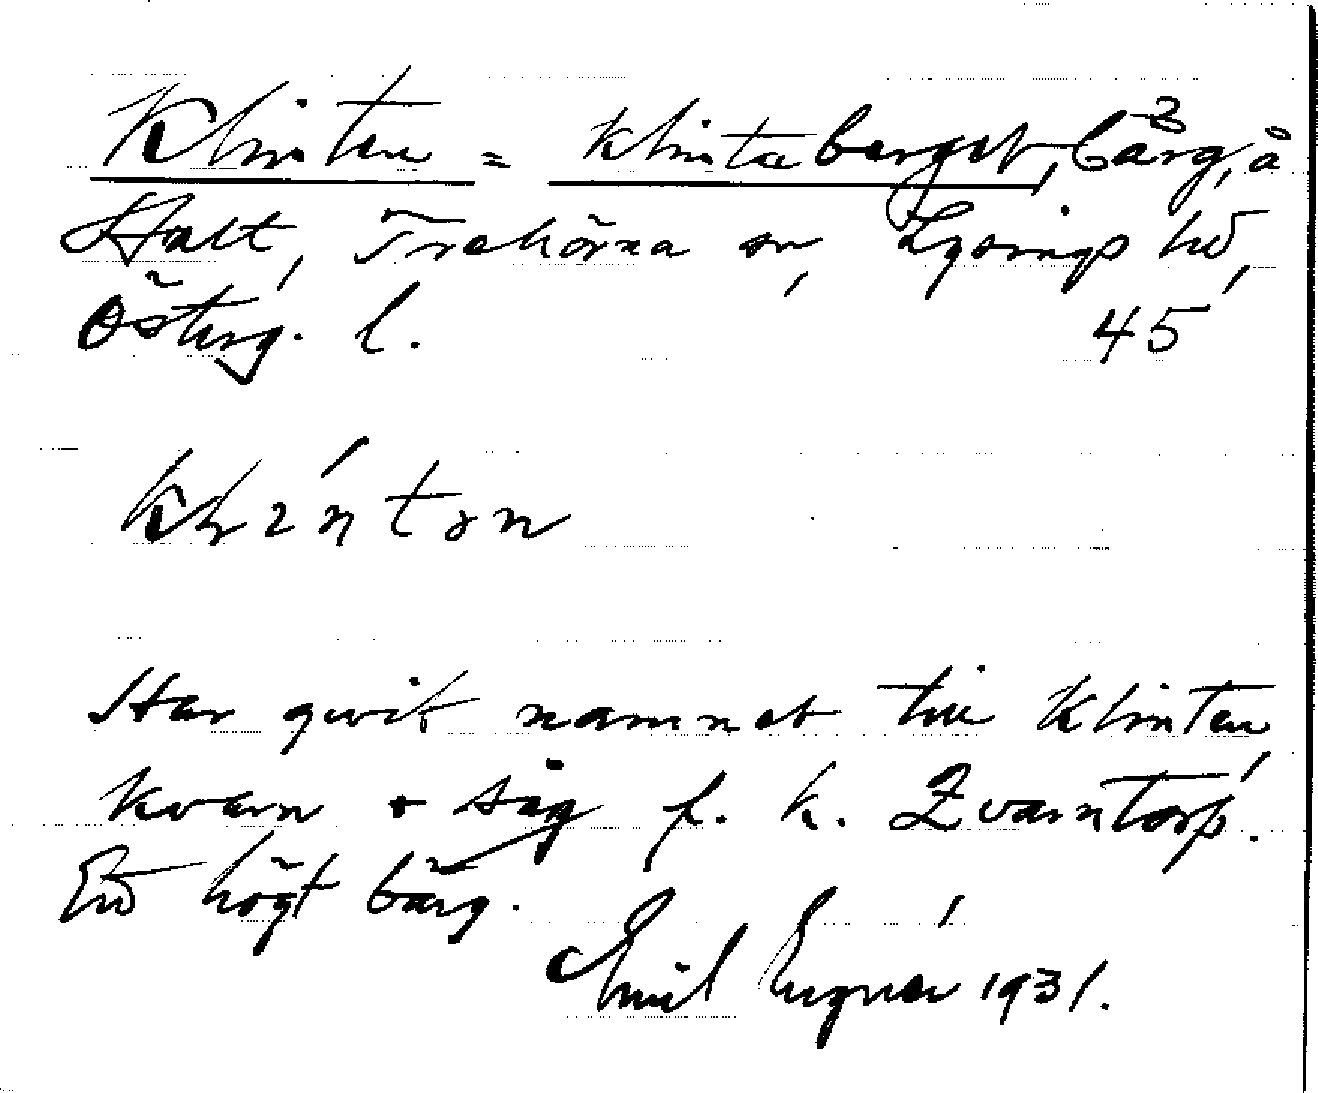 Klinten = Klintaberget, bärg, å
Hult, Trehörna sn, Lysings hd,
Österg. l. 45
Har givit namnet till Klinten
kvarn + såg f. k. Kvarntorp.
Ett högt bärg.
Emil 1931.